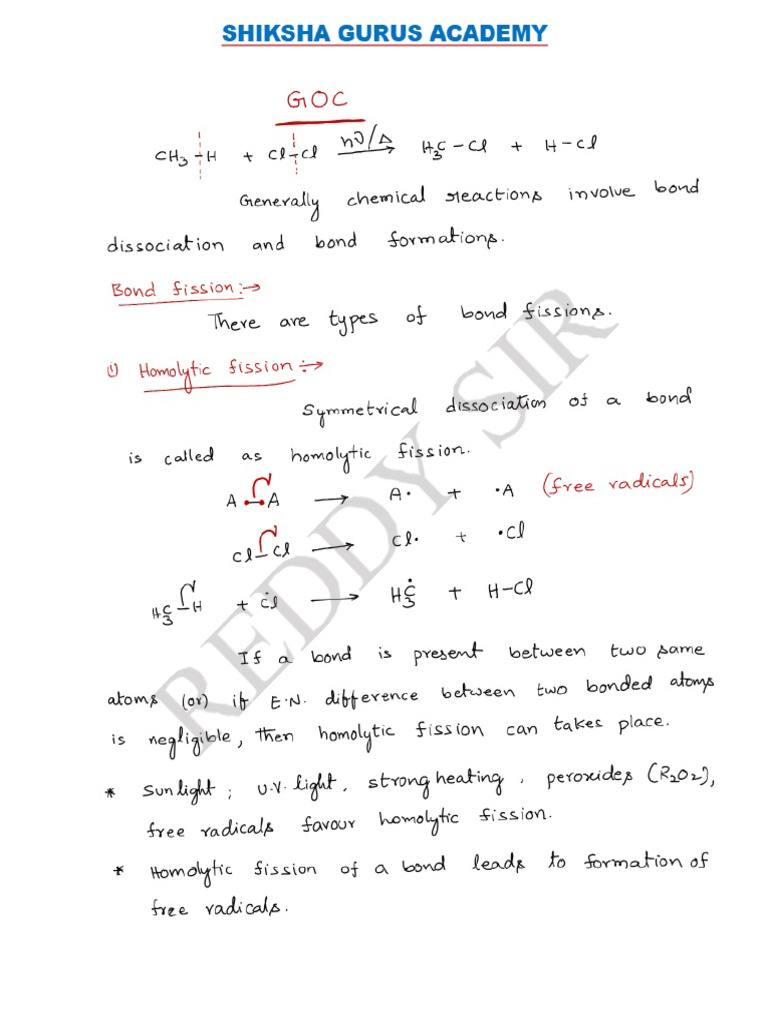 SHIKSHA GURUS ACADEMY
GOC
CH₃-H + Cl-Cl hν/Δ→ H₃C-Cl + H-Cl
Generally chemical reactions involve bond
dissociation and bond formations.
Bond fission:→
There are types of bond fissions.
i) Homolytic fission:→
Symmetrical dissociation of a bond
is called as homolytic fission.
A-A → A• + •A (free radicals)
Cl-Cl → Cl• + •Cl
H₃C-H + Ċl → H₃Ċ + H-Cl
If a bond is present between two same
atoms (or) if E.N. difference between two bonded atoms
is negligible, then homolytic fission can takes place.
* Sunlight; U.V. light, strong heating, peroxides (R₂O₂),
free radicals favour homolytic fission.
* Homolytic fission of a bond leads to formation of
free radicals.
REDDY SIR